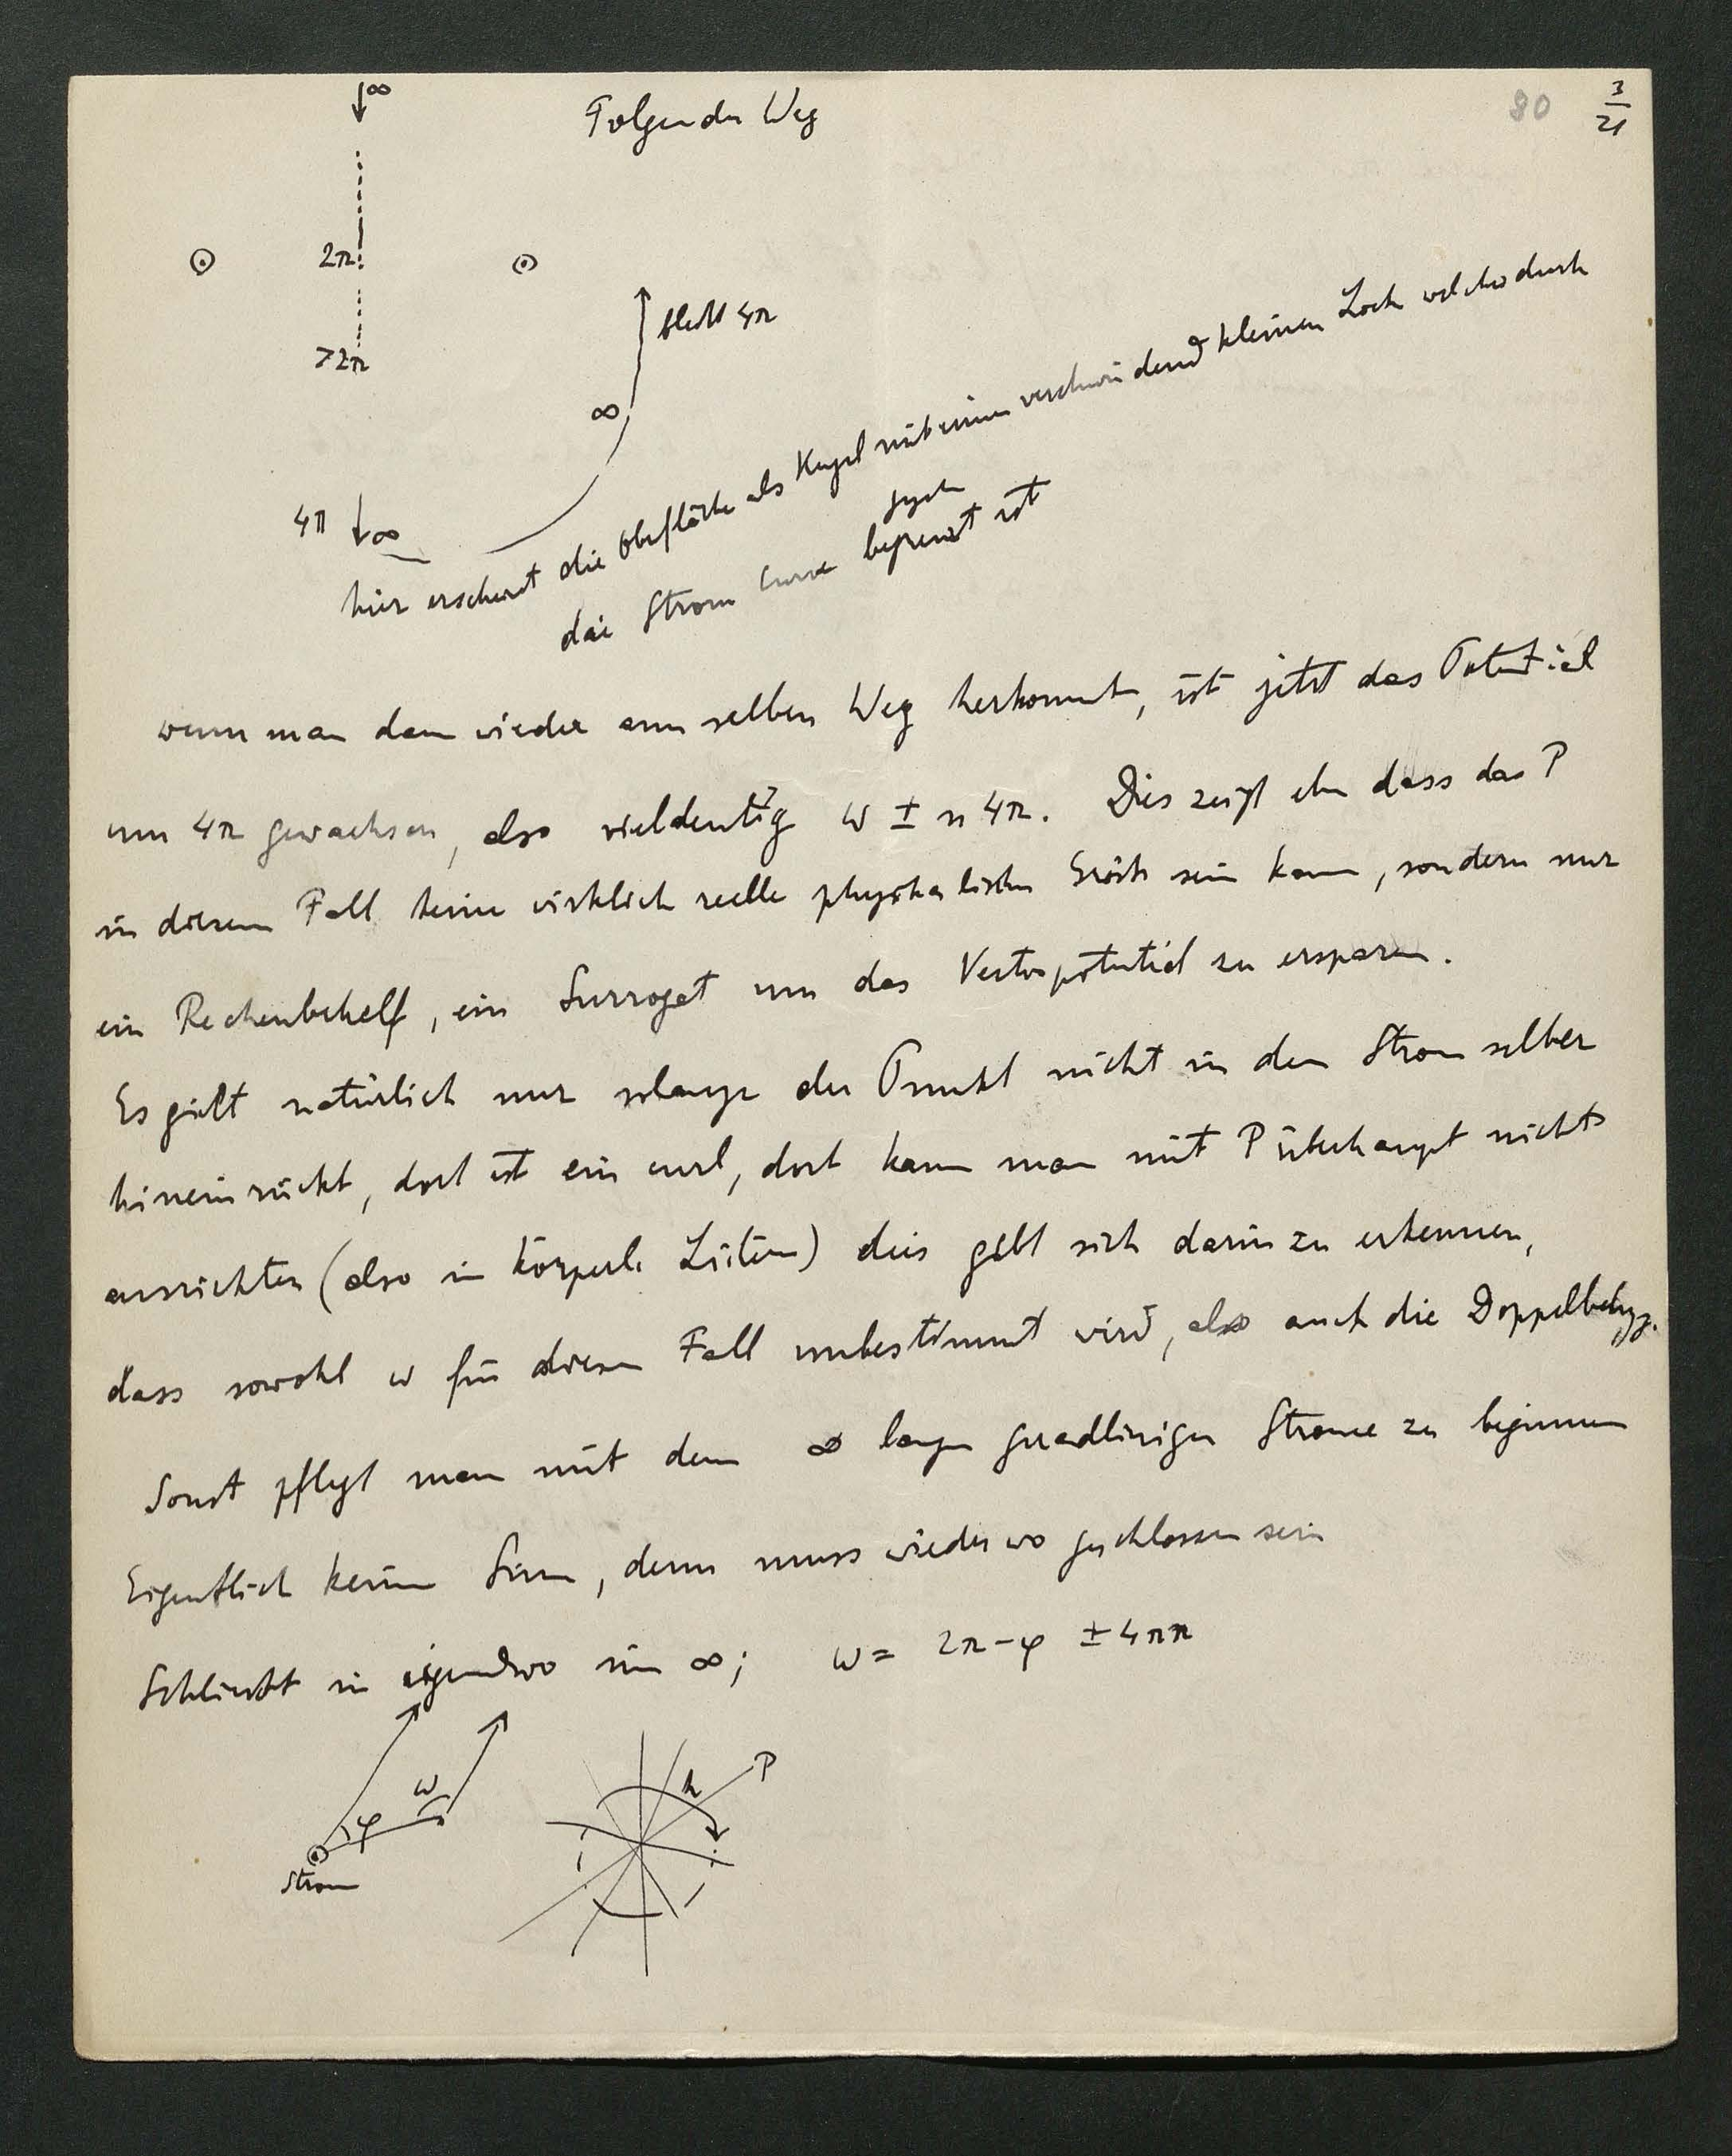 ↓∞
Folgender Weg
80
3/21
2π
>2π
bleibt 4π
∞
4π ↓∞
hier erscheint die Oberfläche als Kugel mit einem verschwindend kleinen Loch welches durch
die Strom curve begrenzt ist
wenn man dann wieder am selben Weg herkommt, ist jetzt das Potential
um 4π gewachsen, also vieldeutig w ± n 4π. Dies zeigt eben dass das P
in diesem Fall keine wirklich reelle physikalische Grösse sein kann, sondern nur
ein Rechenbehelf, ein Surrogat um das Vectorpotential zu ersparen.
Es gilt natürlich nur solange der Punkt nicht in den Strom selber
hineinrückt, dort ist ein curl, dort kann man mit P überhaupt nichts
ausrichten (also in körperl. Leitern) dies gibt sich darin zu erkennen,
dass sowohl w für diesen Fall unbestimmt wird, also auch die Doppelbelegg.
Sonst pflegt man mit dem ∞ langen geradlinigen Strome zu beginnen
Eigentlich keinen Sinn, denn muss wieder wo geschlossen sein
Schliesst in irgendwo im ∞; w = 2π-φ ± 4πn
w
φ
Strom
h
P